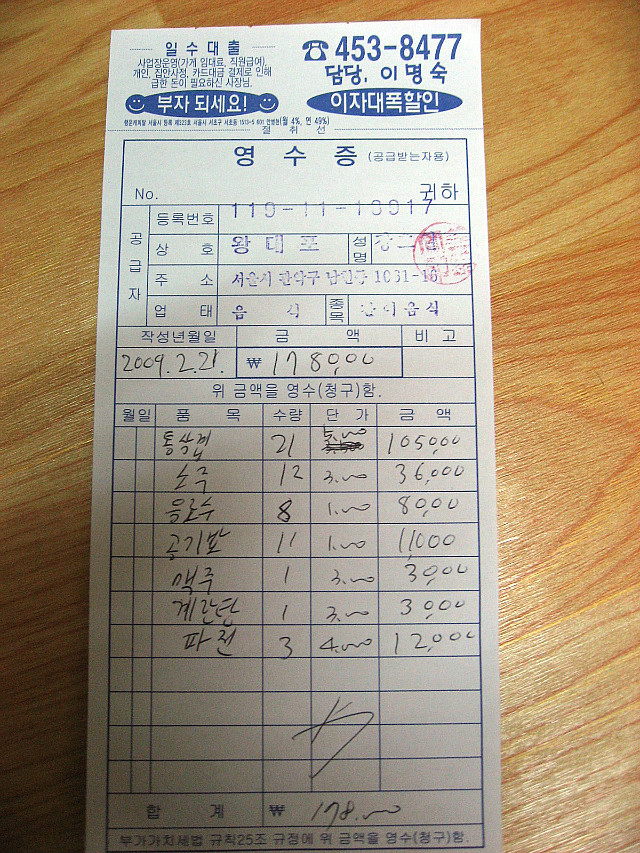 일 수 대 출
사업장운영(가게 임대료, 직원급여),
개인, 집안사정, 카드대금 결제로 인해
급한 돈이 필요하신 사장님.
부자 되세요!
☎453-8477
담당. 이명숙
이자대폭할인
서울시 등록 제323호 서울시 서초구 서초동 1513-5 601 (월 4%, 연 49%)
절 취 선
영 수 증 (공급받는자용)
No. 귀하
공급자
등록번호 119-11-13917
상 호 왕대포 성명
주 소 서울시 관악구 남현동 1031-16
업 태 음식 종목 한식음식
작성년월일 금 액 비 고
2009.2.21. ₩ 178000
위 금액을 영수(청구)함.
월일 품 목 수량 단 가 금 액
통삼겹 21 5,000 105,000
소주 12 3,000 36,000
음료수 8 1,000 8,000
공기밥 11 1,000 11,000
맥주 1 3,000 3,000
계란탕 1 3,000 3,000
파전 3 4,000 12,000
합 계 ₩ 178,000
부가가치세법 규칙25조 규정에 위 금액을 영수(청구)함.